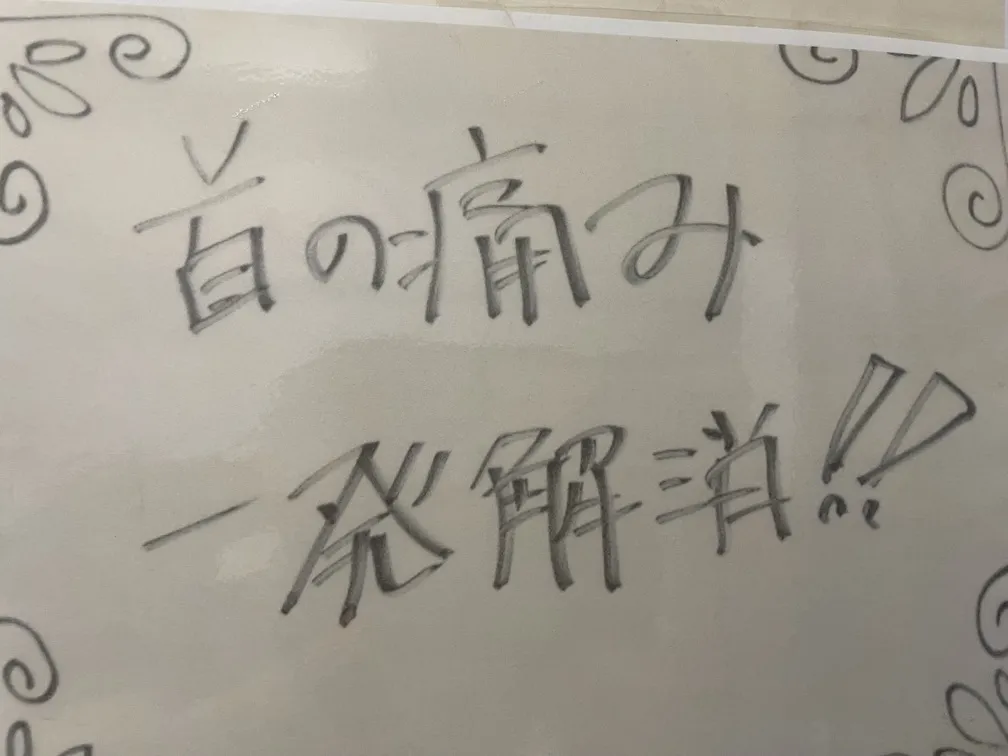 首の痛み
一発解消!!